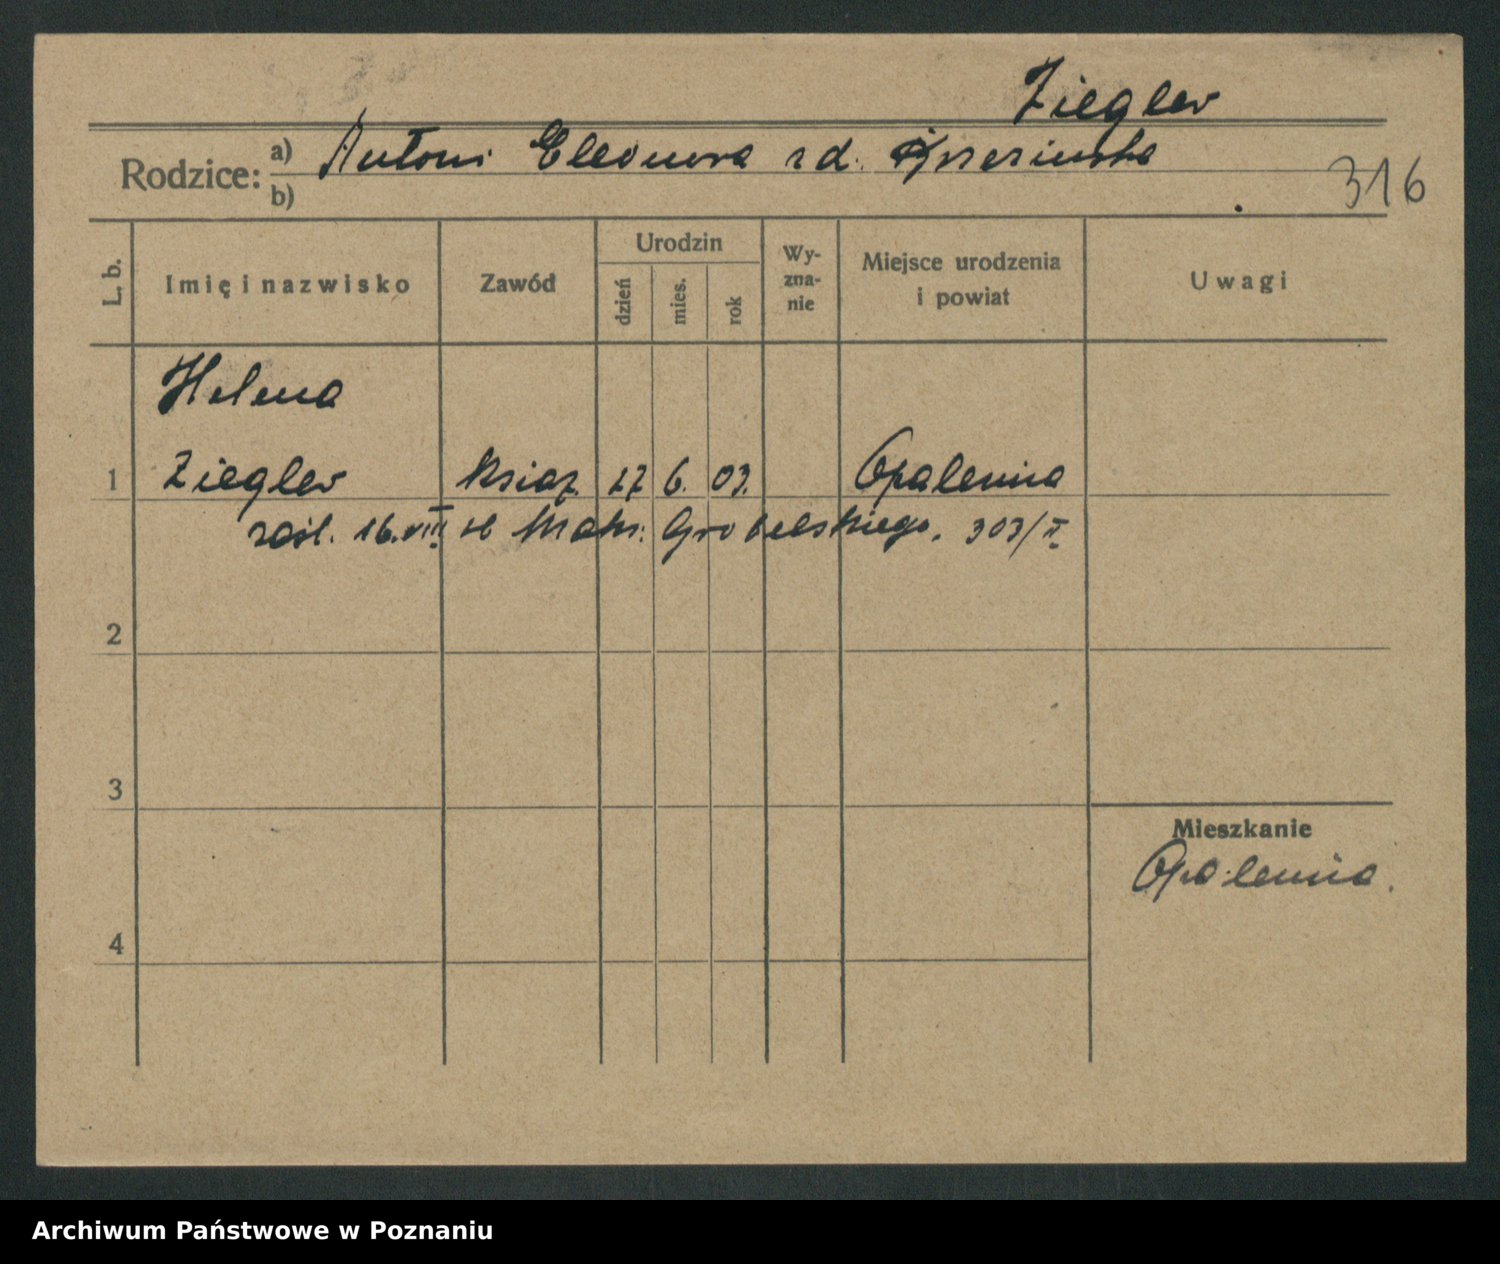 Ziegler
Rodzice: a) Antoni Eleonora z d.
b)
316
L. b. Imię i nazwisko Zawód Urodzin dzień mies. rok Wyznanie Miejsce urodzenia i powiat Uwagi
Helena
1 Ziegler 27 6. 03. Opalenica
zaśl. 16.VIII Grobelskiego. 303/II
2
3
Mieszkanie
Opalenica.
4
Archiwum Państwowe w Poznaniu